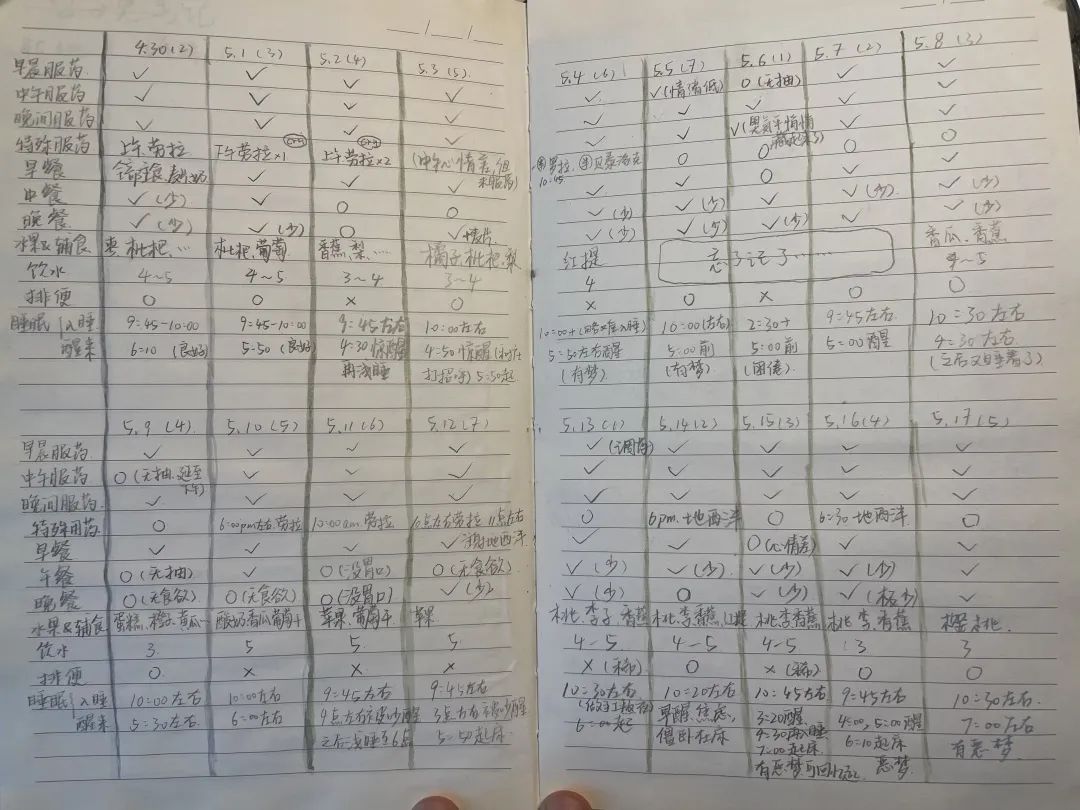 4.30(2) 5.1(3) 5.2(4) 5.3(5)
早晨服药 ✓ ✓ ✓
中午服药 ✓ ✓ ✓ ✓
晚间服药 ✓ ✓ ✓ ✓
特殊服药 上午劳拉 下午劳拉×1 上午劳拉×2 (中午心情差,但未服药)
早餐 ✓ ✓ ✓
中餐 ✓(少) ✓ ○ ○
晚餐 ✓(少) ✓(少) ○ ✓
水果&辅食 枣.枇杷.… 枇杷.葡萄 香蕉,梨.… 橘子.枇杷.梨
饮水 4~5 4~5 3~4 3~4
排便 ○ ○ × ○
睡眠 入睡 9:45-10:00 9:45-10:00 9:45左右 10:00左右
醒来 6:10 (良好) 5:50 (良好) 4:30惊醒 4:50惊醒
再浅睡 打招呼) 5:50起
5.9(4) 5.10(5) 5.11(6) 5.12(7)
早晨服药 ✓ ✓ ✓ ✓
中午服药 ○(无抽.延至下午) ✓ ✓ ✓
晚间服药 ✓ ✓ ✓ ✓
特殊用药 ○ 6:00pm左右.劳拉 10:00am.劳拉 10点左右劳拉 11点左右
地西泮
早餐 ✓ ✓ ✓ ✓
午餐 ○(无抽) ✓ ○(没胃口) ○(无食欲)
晚餐 ○(无食欲) ○(无食欲) ○(没胃口) ✓(少)
水果&辅食 蛋糕.橙子.黄瓜… 酸奶香瓜葡萄干 苹果.葡萄干 苹果
饮水 3 5 5 5
排便 ○ × × ×
睡眠 入睡 10:00左右 10:00左右 9:45左右 9:45左右
醒来 5:30左右 6:00左右 4点左右被吵醒 3点左右被吵醒
之后浅睡至6点 5:50起床
5.4(6) 5.5(7) 5.6(1) 5.7(2) 5.8(3)
✓ ✓(情绪低) ○(无抽) ✓ ✓
✓ ✓ ✓ ✓ ✓
✓ ✓ ✓ ✓ ✓
劳拉. 10:45 ○ ○ ○ ○
✓ ✓ ○ ✓ ✓
✓(少) ✓(少) ✓ ✓(少) ✓(少)
✓(少) ✓(少) ✓(少) ✓ ✓(少)
红提 忘了记了…… 香瓜.香蕉
4 4~5
× ○ × ○ ○
10:00+ 10:00(左右) 2:30+ 9:45左右 10:30左右
5:50左右醒 5:00前 5:00前 5:00醒 4:30左右
(有梦) (有梦) (困倦) (之后又睡着了)
5.13(1) 5.14(2) 5.15(3) 5.16(4) 5.17(5)
✓(调药) ✓ ✓ ✓ ✓
✓ ✓ ✓ ✓ ✓
✓ ✓ ✓ ✓ ✓
○ 6pm.地西泮 ○ 6:30地西泮 ○
✓ ✓ ○(心情差) ✓ ✓
✓(少) ✓(少) ✓(少) ✓(少) ✓
✓(少) ○ ✓(少) ✓(极少) ✓
桃.李子.香蕉 桃.李香蕉.红提 桃.李香蕉 桃.李.香蕉 樱桃.
4-5 4-5 4-5 3 3
×(稀) ○ ×(稀) ○ ○
10:30左右 10:20左右 10:45左右 9:45左右 10:30左右
6:00起 早醒.焦虑, 3:20醒 4:00,5:00醒 7:00左右
僵卧在床 4:30再入睡 6:10起床 有恶梦
7:00起床 恶梦
有恶梦可回忆